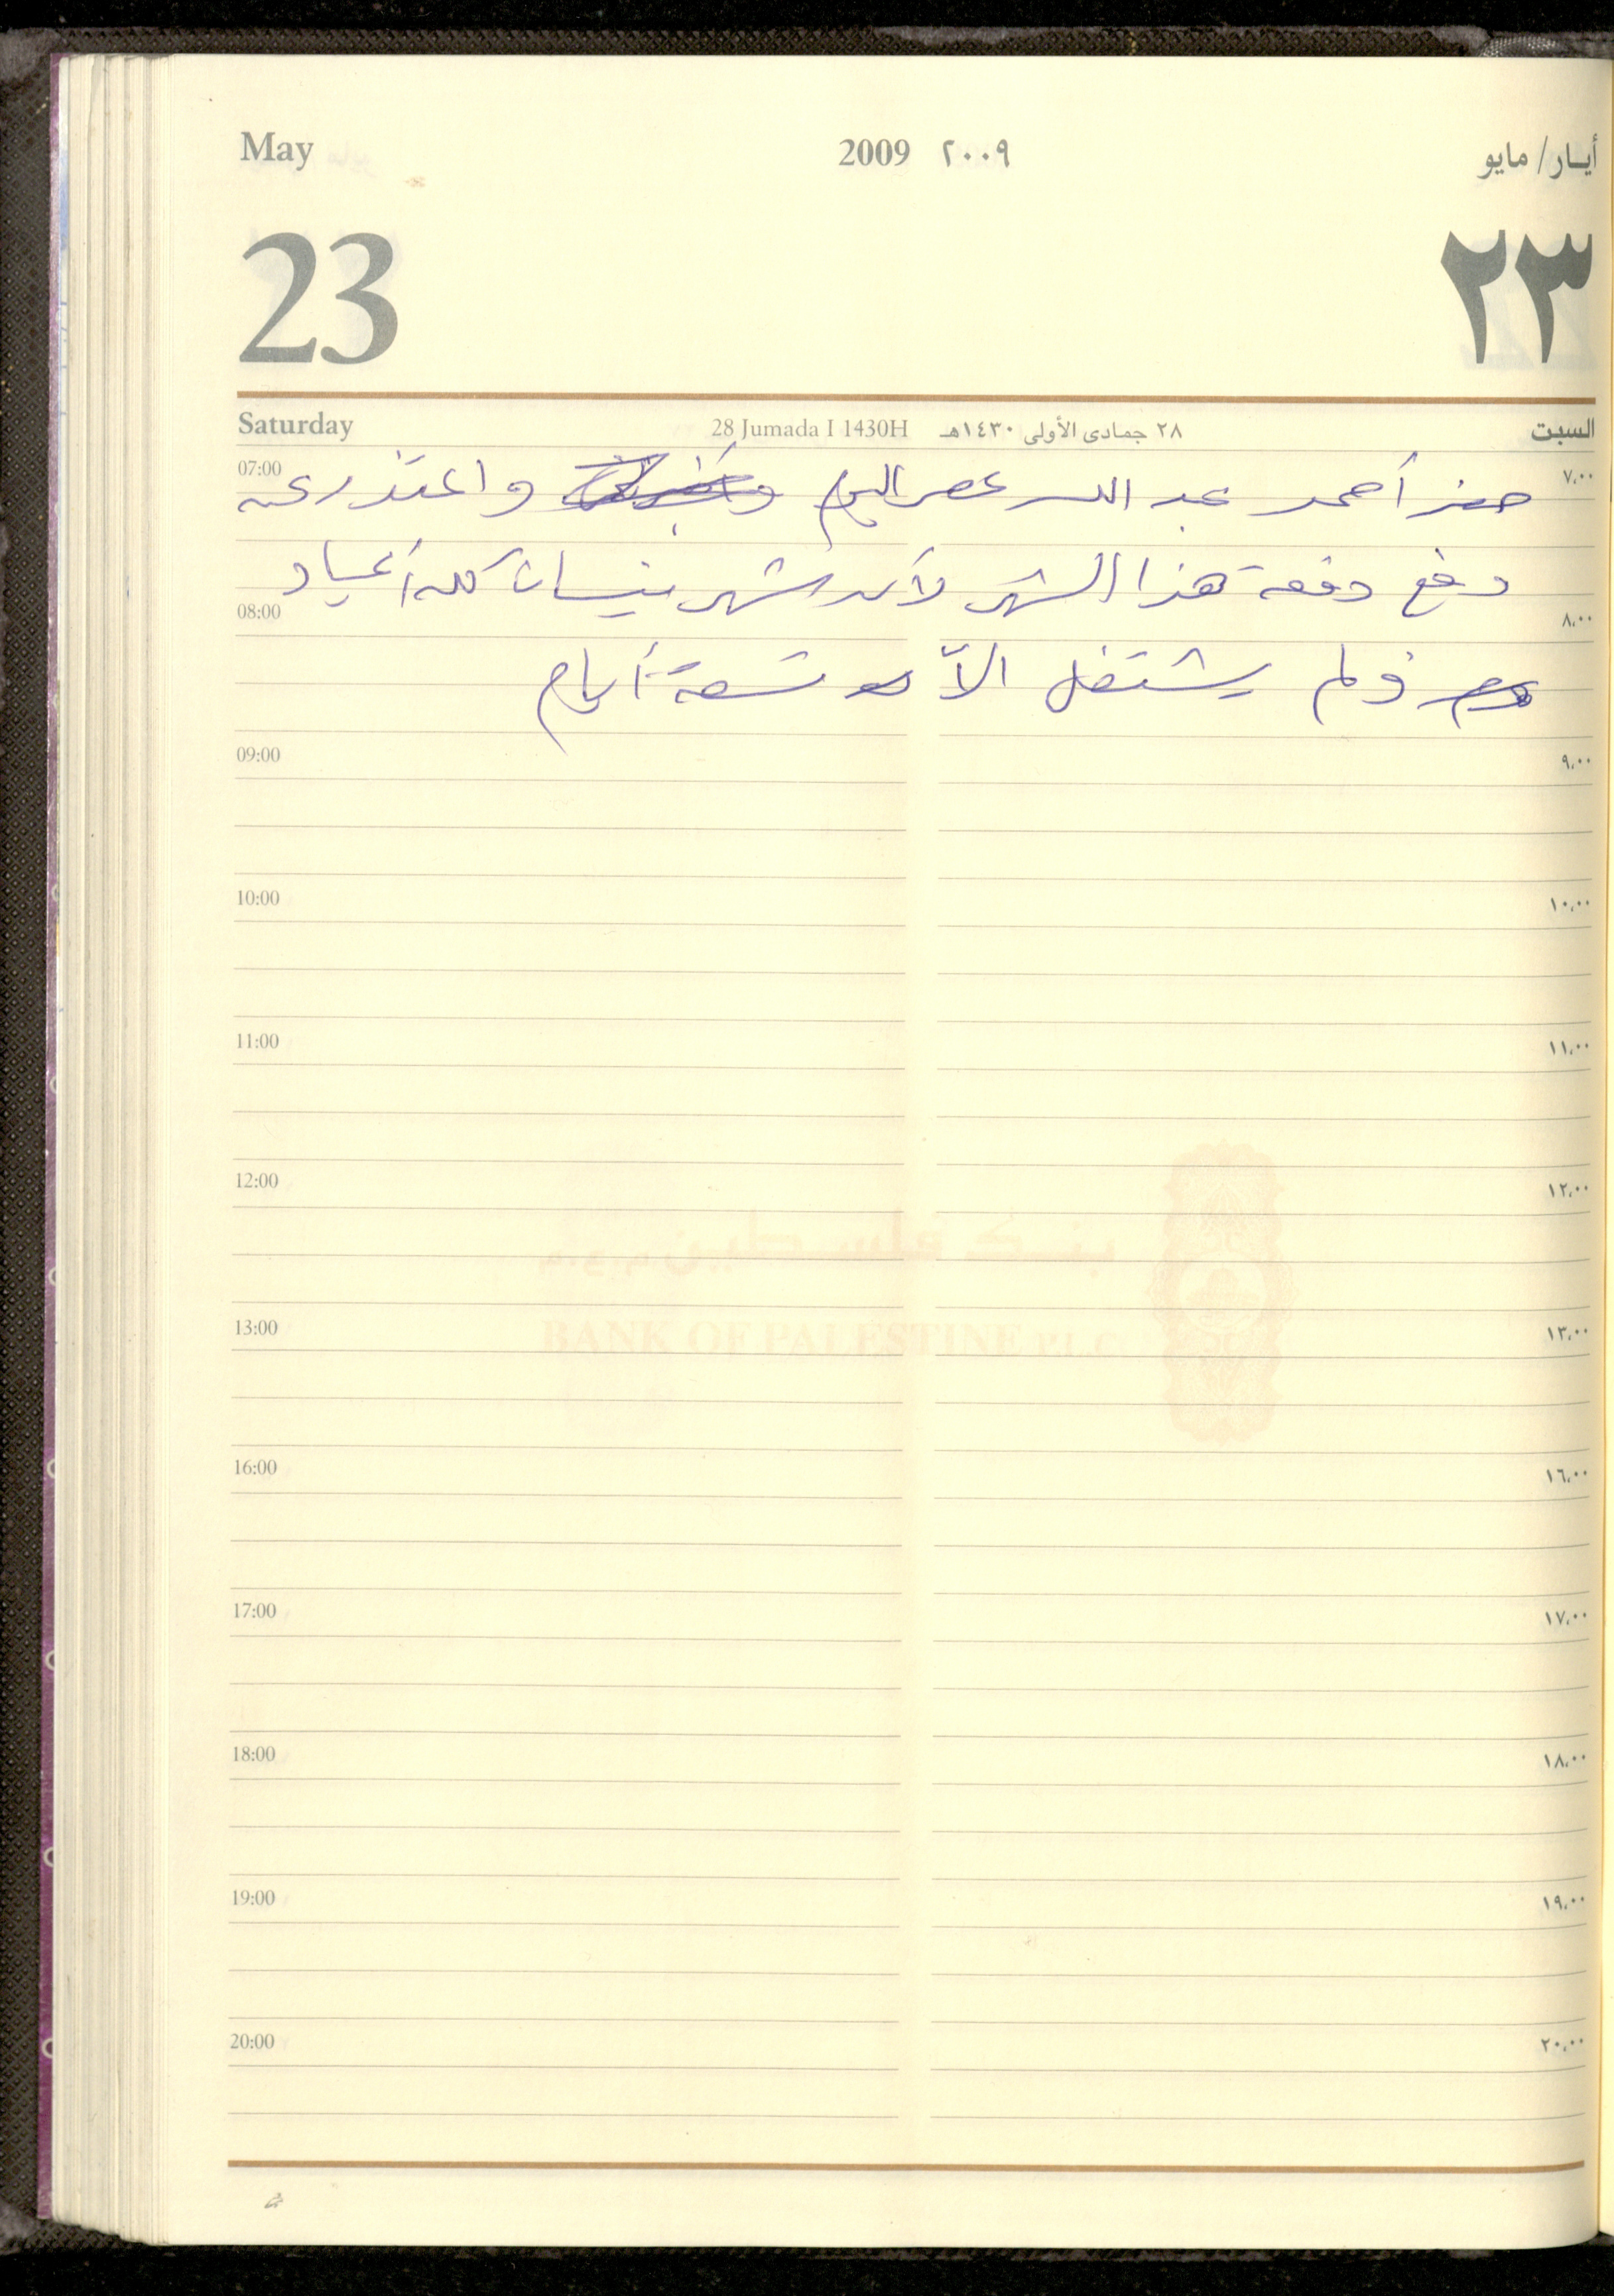 May 2009 ٢٠٠٩ أيـار/ مايو
23 ٢٣
Saturday 28 Jumada I 1430H ٢٨ جمادى الأولى ١٤٣٠هـ السبت
07:00 ٧،٠٠
حضر أحمد عبد الله عصر اليوم واعتذر عن
دفع دفعة هذا الشهر لأن شهر نيسان كله أعياد
08:00 ٨،٠٠
ولم يشتغل الاّ تسعة أيام
09:00 ٩،٠٠
10:00 ١٠،٠٠
11:00 ١١،٠٠
12:00 ١٢،٠٠
بنك فلسطين
13:00 ١٣،٠٠
BANK OF PALESTINE P.L.C.
16:00 ١٦،٠٠
17:00 ١٧،٠٠
18:00 ١٨،٠٠
19:00 ١٩،٠٠
20:00 ٢٠،٠٠